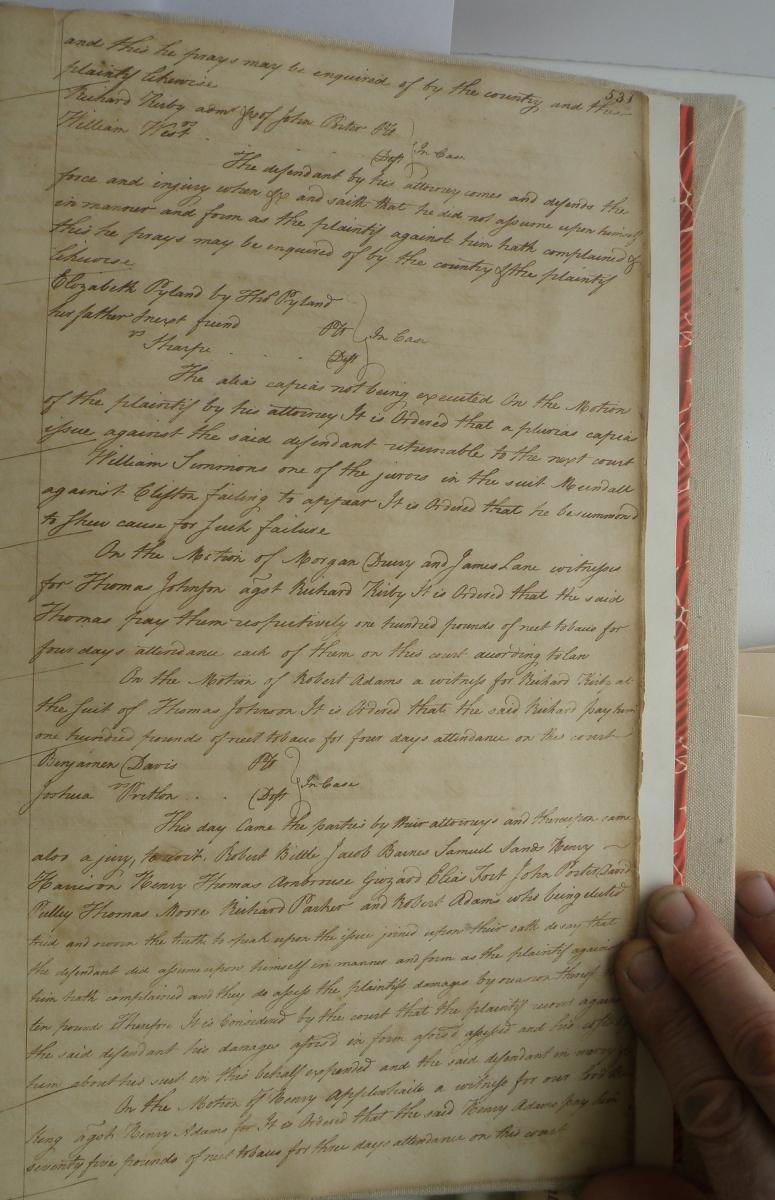 531
and this he prays may be enquired of by the country and the
plaintif likewise
Richard Kirby admr &c of John Porter Plt
vs In Case
William West Deft
The defendant by his attorney comes and defends the
force and injury when &c and saith that he did not assume upon himself
in manner and form as the plaintif against him hath complained &
this he prays may be enquired of by the country & the plaintif
likewise
Elizabeth Pyland by Pyland
her father & next friend Plt In Case
vs Sharpe Deft
The alias capias not being executed On the Motion
of the plaintif by his attorney It is Ordered that a plurias capias
issue against the said defendant returnable to the next court
William Simmons one of the jurors in the suit Mundall
against Clifton failing to appear It is Ordered that he be summond
to shew cause for such failure
On the Motion of Morgan Drury and James Lane witnesses
for Thomas Johnson agst Richard Kirby It is Ordered that the said
Thomas pay them respectively one hundred pounds of neet tobaco for
four days attendance each of them on this court according to law
On the Motion of Robert Adams a witness for Richard Kirby at
the suit of Thomas Johnson It is Ordered that the said Richard pay him
one hundred pounds of neet tobaco for four days attendance on this court
Benjamen Davis Plt
vs In Case
Joshua Deft
This day Came the parties by their attorneys and thereupon came
also a jury, to wit, Robert Bittle Jacob Barnes Samuel Sands Henry
Harrison Henry Thomas Ambrouse Elias Fort John Porter David
Pulley Thomas Moore Richard Parker and Robert Adams who being elected
tried and sworn the truth to speak upon the issue joined upon their oath do say that
the defendant did assume upon himself in manner and form as the plaintif against
him hath complained and they do assess the plaintifs damages by reason thereof to
ten pounds Therefore It is Considered by the court that the plaintif recover against
the said defendant his damages aforsd in form aforsd assessed and his costs by
him about his suit in this behalf expended and the said defendant in mercy &c
On the Motion of Henry Applewhaite a witness for our lord the
King agst Henry Adams for It is Ordered that the said Henry Adams pay him
seventy five pounds of neet tobaco for three days attendance on this court